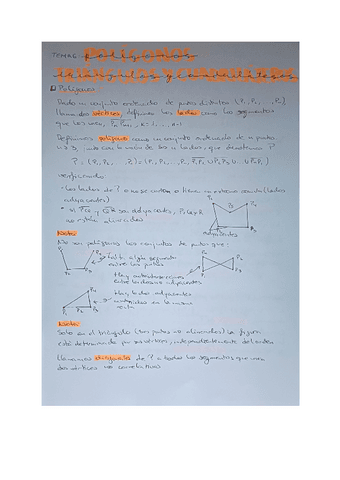 TEMA 6:
POLÍGONOS
TRIÁNGULOS Y CUADRILÁTEROS
Polígonos
Dado un conjunto ordenado de puntos distintos {P₁, P₂, ..., Pₙ}
llamados vértices, definimos los lados como los segmentos
que los unen,
Definimos polígono como un conjunto ordenado de n puntos
n≥3, junto con la unión de sus n lados, que denotamos P
verificando
- Los lados de P o no se cortan o tienen un extremo común (lados
adyacentes)
adyacentes
Nota:
No son polígonos los conjuntos de puntos que:
Falta algún segmento
entre los puntos
Hay
entre lados no adyacentes
Hay lados adyacentes
contenidos en la misma
recta
Nota:
Solo en el triángulo (tres puntos no alineados) la figura
está determinada por sus vértices, independientemente del orden
Llamamos diagonales de P a todos los segmentos que unen
dos vértices no correlativos